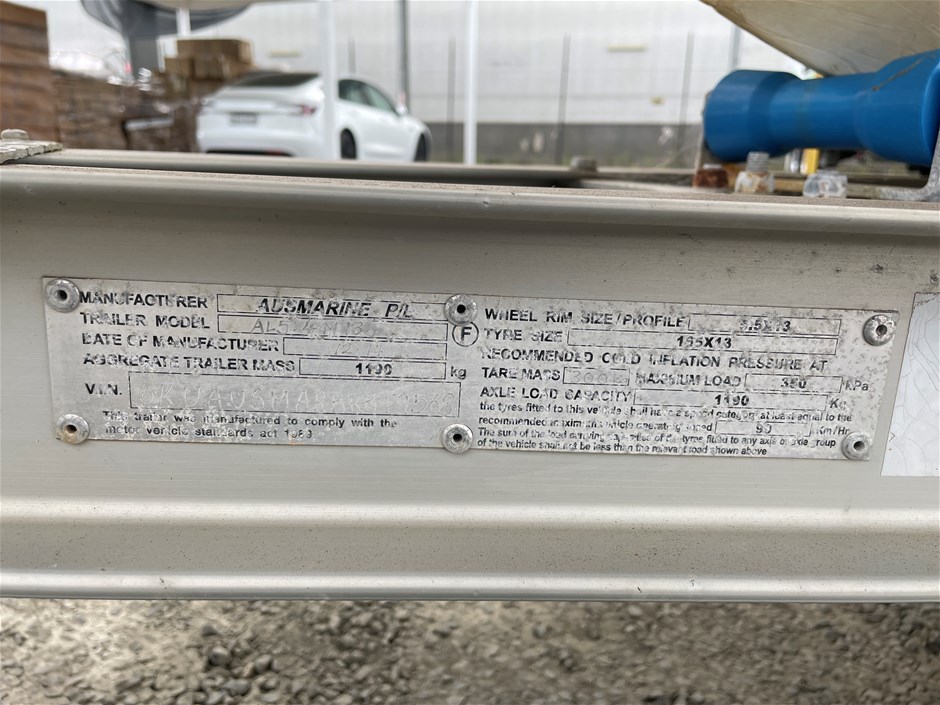 MANUFACTURER AUSMARINE P/L
TRAILER MODEL
DATE OF MANUFACTURER
AGGREGATE TRAILER MASS 1190 kg
V.I.N.
This trailer was manufactured to comply with the
motor vehicle standards act 1989
WHEEL RIM SIZE/PROFILE
F TYRE SIZE 165X13
RECOMMENDED COLD INFLATION PRESSURE AT
TARE MASS MAXIMUM LOAD 350 KPa
AXLE LOAD CAPACITY 1190 Kg
the tyres fitted to this vehicle shall have a speed category at least equal to the
recommended maximum vehicle operating speed 90 Km/Hr
The sum of the load carrying capacities of the tyres fitted to any axis or axle group
of the vehicle shall not be less than the relevant load shown above